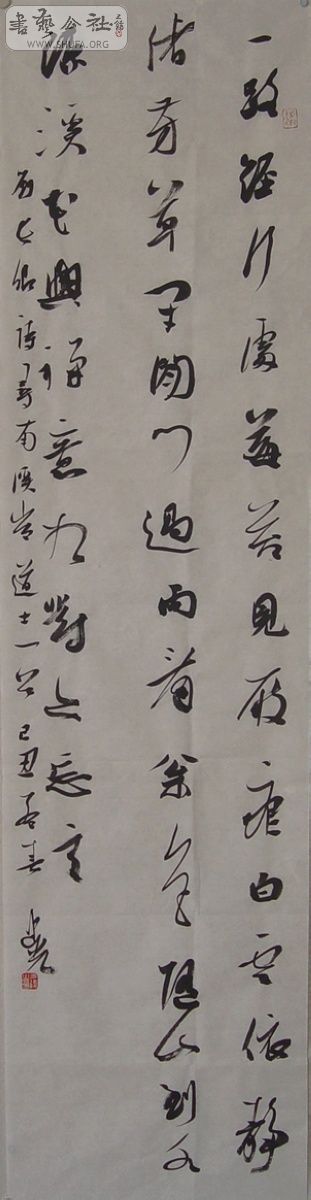 書藝公社
WWW.SHUFA.ORG
一路經行處莓苔見履痕白雲依靜
渚芳草閉閑門過雨看松色隨山到水
源溪花與禪意相對亦忘言
劉長卿詩尋南溪常道士一首己丑孟春